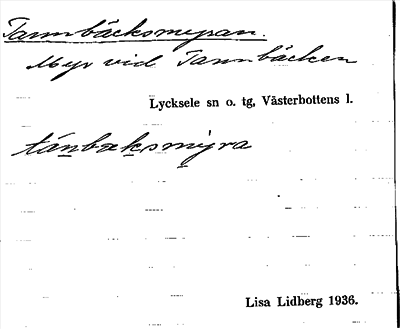 Tannbäcksmyran.
Myr vid Tannbäcken
Lycksele sn o. tg, Västerbottens l.
tánbæksmýra
Lisa Lidberg 1936.